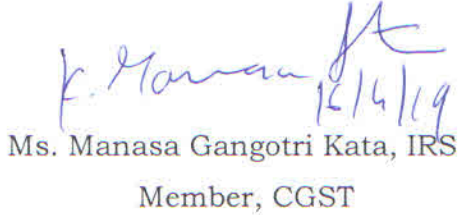 K. Manasa
16/4/19
Ms. Manasa Gangotri Kata, IRS
Member, CGST